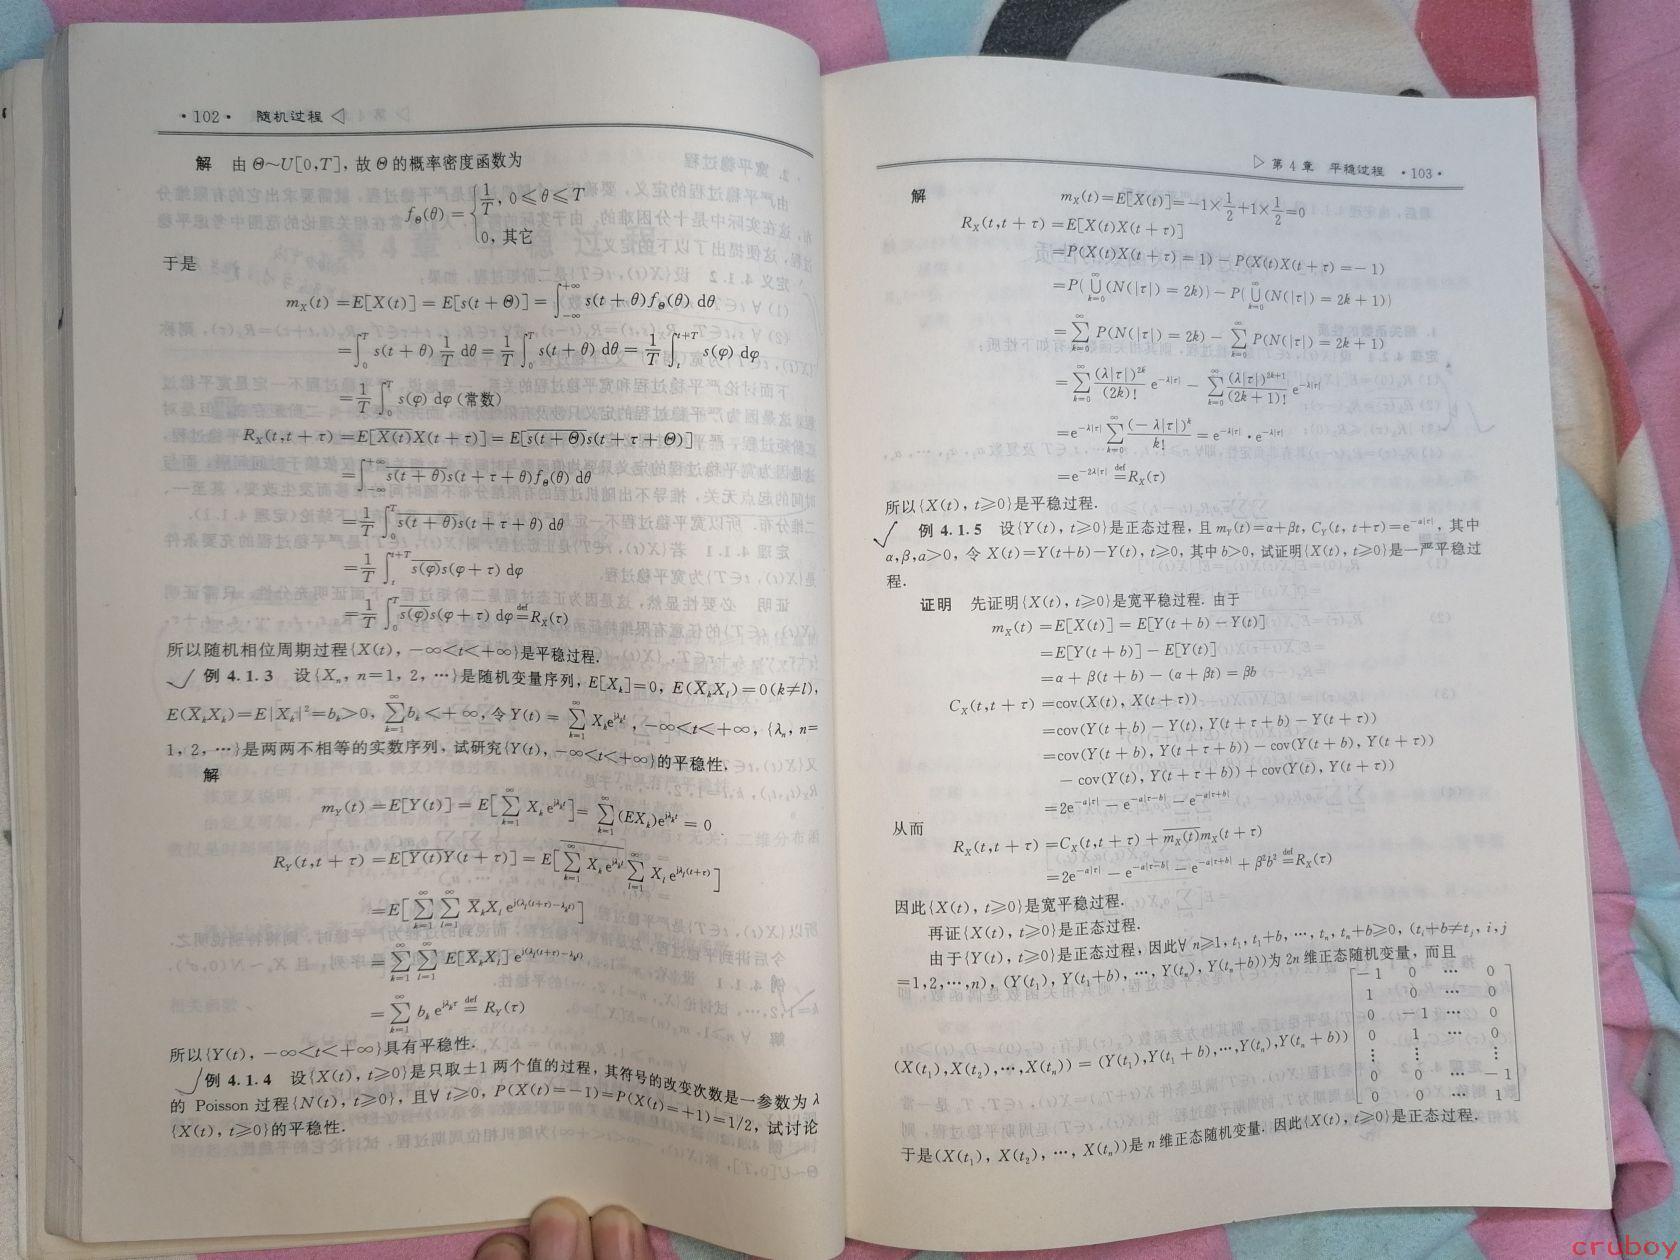 ·102· 随机过程 ◁
解 由 Θ~U[0,T], 故 Θ 的概率密度函数为
f_Θ(θ) = { 1/T, 0≤θ≤T
0, 其它
于是
m_X(t) = E[X(t)] = E[s(t+Θ)] = ∫_{-∞}^{+∞} s(t+θ) f_Θ(θ) dθ
= ∫_0^T s(t+θ) 1/T dθ = 1/T ∫_0^T s(t+θ) dθ = 1/T ∫_t^{t+T} s(φ) dφ
= 1/T ∫_0^T s(φ) dφ (常数)
R_X(t,t+τ) = E[\overline{X(t)}X(t+τ)] = E[\overline{s(t+Θ)}s(t+τ+Θ)]
= ∫_{-∞}^{+∞} \overline{s(t+θ)}s(t+τ+θ) f_Θ(θ) dθ
= 1/T ∫_0^T \overline{s(t+θ)}s(t+τ+θ) dθ
= 1/T ∫_t^{t+T} \overline{s(φ)}s(φ+τ) dφ
= 1/T ∫_0^T \overline{s(φ)}s(φ+τ) dφ \overset{def}{=} R_X(τ)
所以随机相位周期过程{X(t), -∞<t<+∞}是平稳过程.
例 4.1.3 设{X_n, n=1, 2, …}是随机变量序列, E[X_k]=0, E(\overline{X}_kX_l)=0(k≠l),
E(\overline{X}_kX_k)=E|X_k|^2=b_k>0, ∑_{k=1}^∞ b_k<+∞, 令Y(t) = ∑_{k=1}^∞ X_k e^{jλ_k t}, -∞<t<+∞, {λ_n, n=
1, 2, …}是两两不相等的实数序列, 试研究{Y(t), -∞<t<+∞}的平稳性.
解
m_Y(t) = E[Y(t)] = E[∑_{k=1}^∞ X_k e^{jλ_k t}] = ∑_{k=1}^∞ (EX_k)e^{jλ_k t} = 0
R_Y(t,t+τ) = E[\overline{Y(t)}Y(t+τ)] = E[\overline{∑_{k=1}^∞ X_k e^{jλ_k t}} ∑_{l=1}^∞ X_l e^{jλ_l(t+τ)}]
= E[∑_{k=1}^∞ ∑_{l=1}^∞ \overline{X}_kX_l e^{j(λ_l(t+τ)-λ_k t)}]
= ∑_{k=1}^∞ ∑_{l=1}^∞ E[\overline{X}_kX_l] e^{j(λ_l(t+τ)-λ_k t)}
= ∑_{k=1}^∞ b_k e^{jλ_k τ} \overset{def}{=} R_Y(τ)
所以{Y(t), -∞<t<+∞}具有平稳性.
例 4.1.4 设{X(t), t≥0}是只取±1 两个值的过程, 其符号的改变次数是一参数为 λ
的 Poisson 过程{N(t), t≥0}, 且∀ t≥0, P(X(t)=-1)=P(X(t)=+1)=1/2, 试讨论
{X(t), t≥0}的平稳性.
▷ 第 4 章 平稳过程 ·103·
解 m_X(t)=E[X(t)]=-1×1/2+1×1/2=0
R_X(t,t+τ) =E[X(t)X(t+τ)]
=P(X(t)X(t+τ)=1)-P(X(t)X(t+τ)=-1)
=P{∪_{k=0}^∞ (N(|τ|)=2k)}-P{∪_{k=0}^∞ (N(|τ|)=2k+1)}
=∑_{k=0}^∞ P(N(|τ|)=2k)-∑_{k=0}^∞ P(N(|τ|)=2k+1)
=∑_{k=0}^∞ (λ|τ|)^{2k}/(2k)! e^{-λ|τ|}-∑_{k=0}^∞ (λ|τ|)^{2k+1}/(2k+1)! e^{-λ|τ|}
=e^{-λ|τ|} ∑_{k=0}^∞ (-λ|τ|)^k/k! = e^{-λ|τ|}·e^{-λ|τ|}
=e^{-2λ|τ|} \overset{def}{=} R_X(τ)
所以{X(t), t≥0}是平稳过程.
例 4.1.5 设{Y(t), t≥0}是正态过程, 且 m_Y(t)=α+βt, C_Y(t, t+τ)=e^{-a|τ|}, 其中
α,β,a>0, 令 X(t)=Y(t+b)-Y(t), t≥0, 其中 b>0, 试证明{X(t), t≥0}是一严平稳过
程.
证明 先证明{X(t), t≥0}是宽平稳过程. 由于
m_X(t) =E[X(t)]=E[Y(t+b)-Y(t)]
=E[Y(t+b)]-E[Y(t)]
=α+β(t+b)-(α+βt)=βb
C_X(t,t+τ) =cov(X(t), X(t+τ))
=cov(Y(t+b)-Y(t), Y(t+τ+b)-Y(t+τ))
=cov(Y(t+b), Y(t+τ+b))-cov(Y(t+b), Y(t+τ))
-cov(Y(t), Y(t+τ+b))+cov(Y(t), Y(t+τ))
=2e^{-a|τ|}-e^{-a|τ-b|}-e^{-a|τ+b|}
从而
R_X(t,t+τ) =C_X(t,t+τ)+\overline{m_X(t)}m_X(t+τ)
=2e^{-a|τ|}-e^{-a|τ-b|}-e^{-a|τ+b|}+β^2b^2 \overset{def}{=} R_X(τ)
因此{X(t), t≥0}是宽平稳过程.
再证{X(t), t≥0}是正态过程.
由于{Y(t), t≥0}是正态过程, 因此∀ n≥1, t_1, t_1+b, …, t_n, t_n+b≥0, (t_i+b≠t_j, i,j
=1,2,…,n), (Y(t_1), Y(t_1+b), …, Y(t_n), Y(t_n+b))为 2n 维正态随机变量, 而且
(X(t_1),X(t_2),…,X(t_n)) = (Y(t_1),Y(t_1+b),…,Y(t_n),Y(t_n+b))
[-1 0 … 0
1 0 … 0
0 -1 … 0
0 1 … 0
⋮ ⋮ ⋮
0 0 … -1
0 0 … 1]
于是(X(t_1), X(t_2), …, X(t_n))是 n 维正态随机变量. 因此{X(t), t≥0}是正态过程.
cruboy